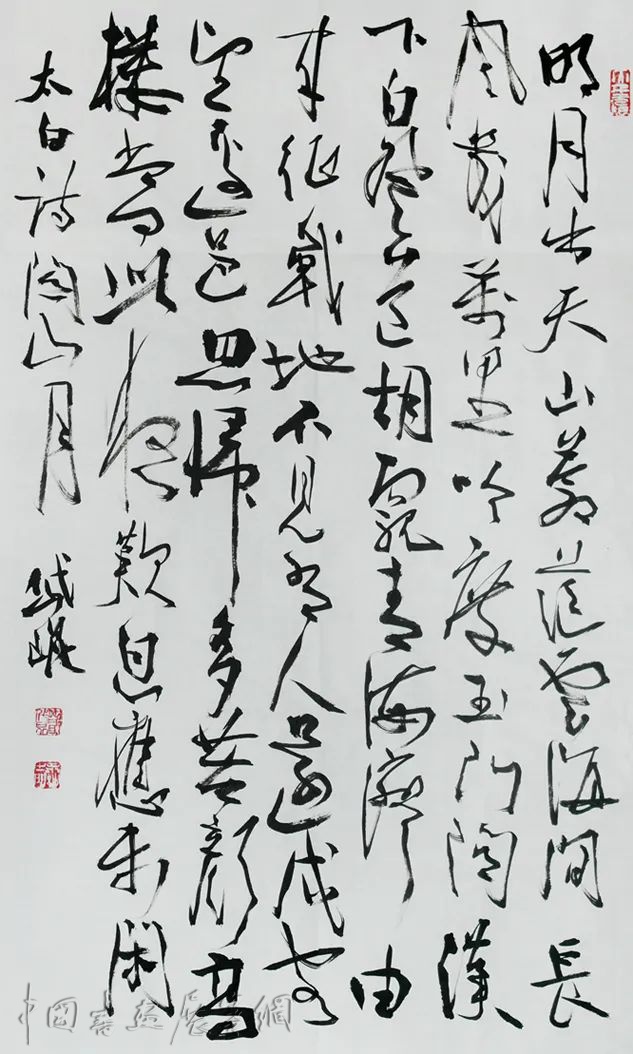 明月出天山蒼茫雲海間長
風幾萬里吟度玉門關漢
下白登山道胡窺青海灣由
來征戰地不見有人還戍客
望邊邑思歸多苦顏高
樓當此夜歎息應未閑
太白詩關山月